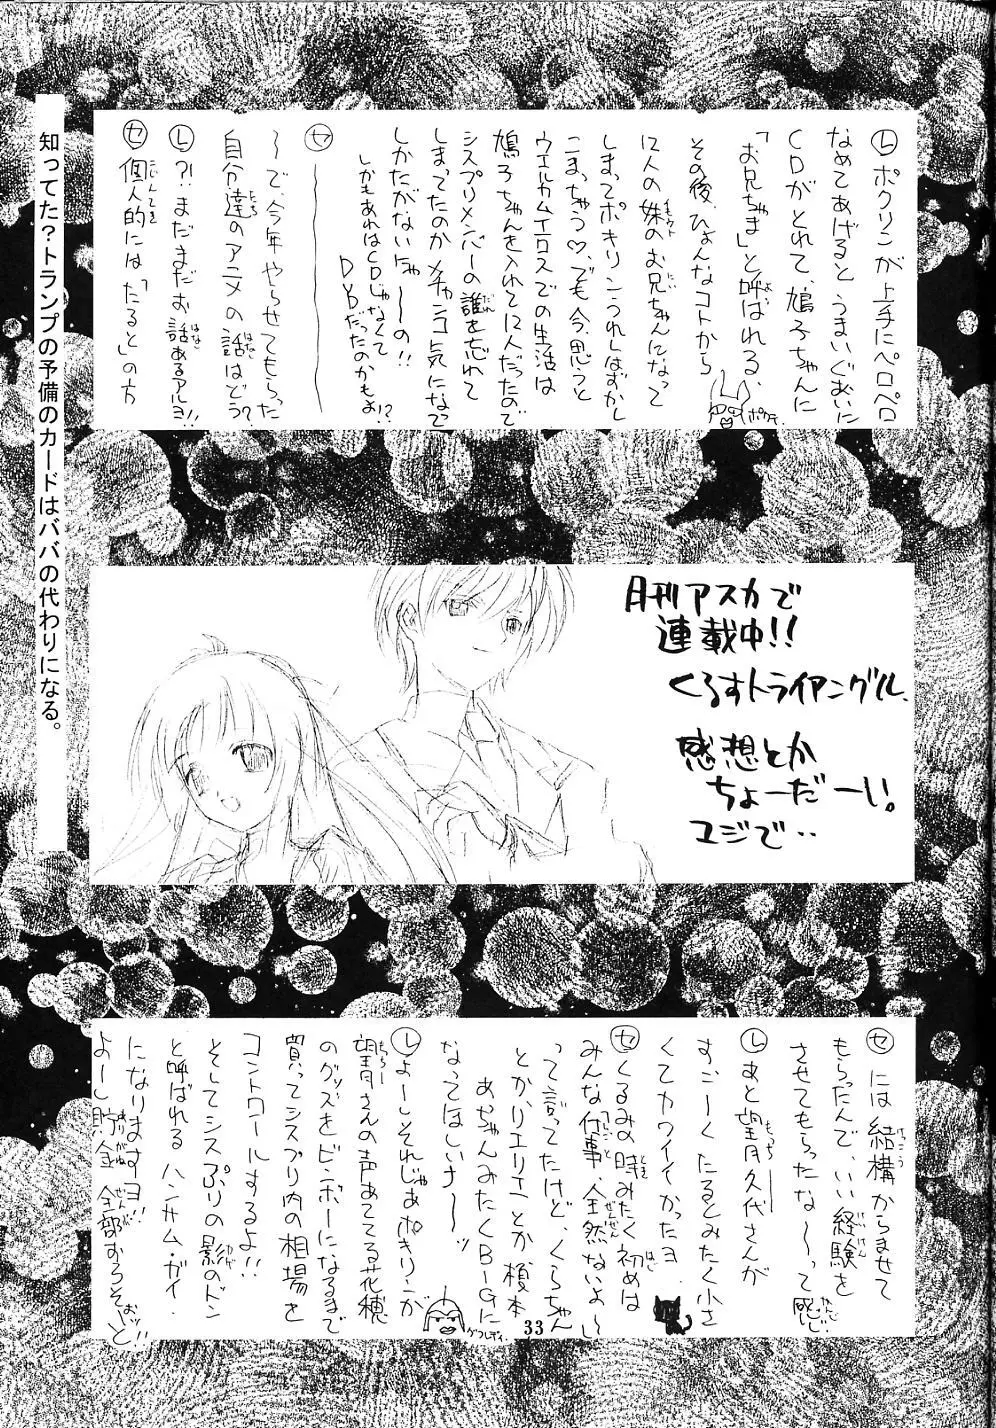 Ⓛポクリンが上手にペロペロ
なめてあげるとうまいぐあいに
CDがとれて、鳩子ちゃんに
「お兄ちゃま」と呼ばれる、
その後、ひょんなコトから
12人の妹のお兄ちゃんになって
しまってポキリンうれしはずかし
こまっちゃう♡、でも今、思うと
ウエルカムイロウスでの生活は
鳩子ちゃんを入れて12人だったので
シスプリメンバーの誰を忘れて
しまってたのかメチャンコ気になって
しかたがないにゃ〜〜の!!
しかもあれはCDじゃなくて
DVDだったのかもよ!?
ポクテ
㋝
〜で、今年やらせてもらった
自分達のアニメの話はどう?
Ⓛ?!まだまだお話あるアルヨ!!
㋝個人的には「たると」の方
知ってた?トランプの予備のカードは、ババの代わりになる。
月刊アスカで
連載中!!
くろすトライアングル、
感想とか
ちょーだーい。
ユジで‥
㋝には結構からませて
もらったんで、いい経験を
させてもらったな〜って感じ
Ⓛあと望月久代さんが
すごーくたるとみたく小さ
くてカワイイかったヨ
㋝くるみの時みたく初めは
みんな仕事、全然ないよ〜
って言ってたけど、くらちゃん
とか、リエリエとか榎本
あっちゃんみたくBIGに
なってほしいナ〜〜ッ
Ⓛよーしそれじゃあポキリンが
望月さんの声あててる花穂
のグッズをビンボーになるまで
買ってシスプリ内の相場を
コントロールするよ!!
そしてシスぷりの影のドン
と呼ばれるハンサム・ガイ
になりますヨ!!
よーし貯金全部おろそっと
33